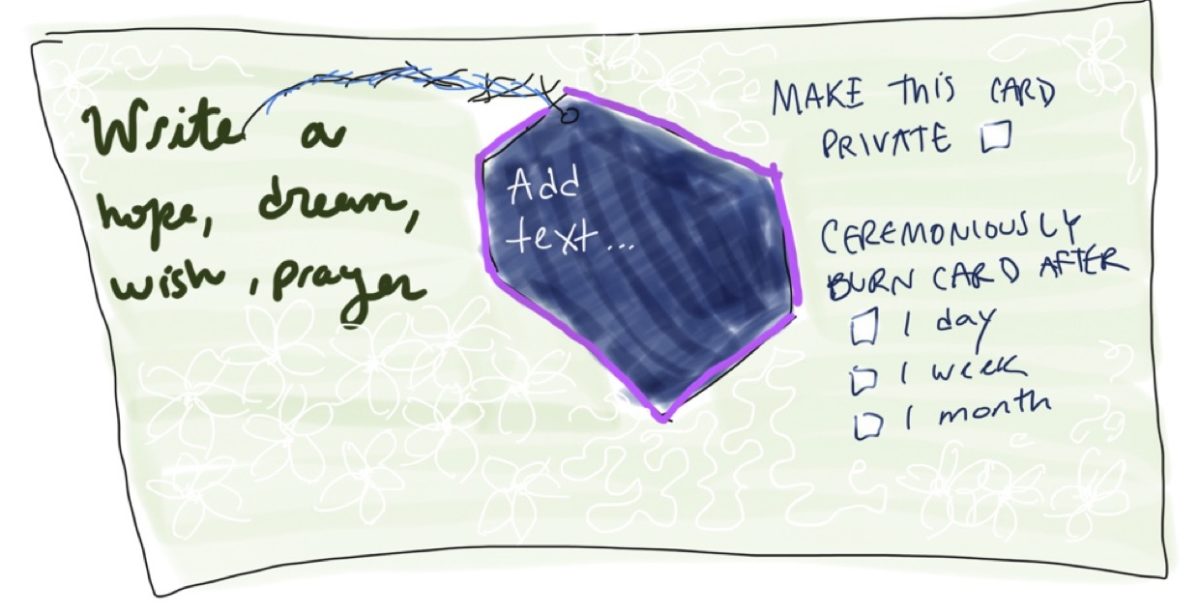 Write a
hope, dream,
wish, prayer
Add
text...
MAKE This CARD
PRIVATE
CEREMONIOUSLY
BURN CARD AFTER
1 day
1 week
1 month